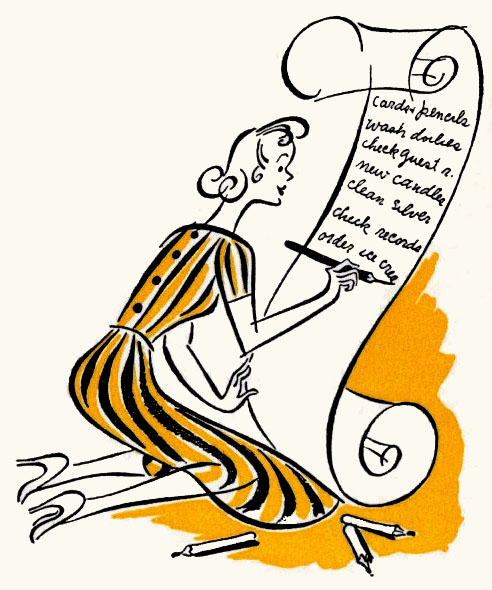 cards & pencils
wash doilies
check guest r.
new candles
clean silver
check records
order ice crea